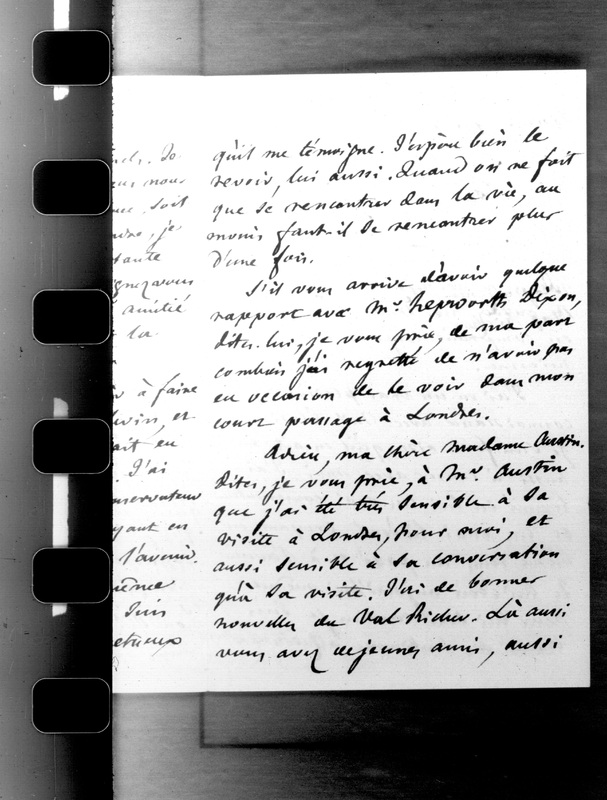 nous
soit
je
amitié
la
à faire
et
en
J'ai
conservateur
ayant en
l'avenir.
qu'il me témoigne. J'espère bien le
revoir, lui aussi. Quand on ne fait
que se rencontrer dans la vie, au
moins faut-il se rencontrer plus
d'une fois.
S'il vous arrive d'avoir quelque
rapport avec Mr. hepworth Dixon,
dites-lui, je vous prie, de ma part
combien j'ai regretté de n'avoir pas
eu occasion de le voir dans mon
court passage à Londres.
Adieu, ma chère madame Austin.
Dites, je vous prie, à Mr. Austin
que j'ai été très sensible à sa
visite à Londres, pour moi, et
aussi sensible à sa conversation
qu'à sa visite. J'ai de bonnes
nouvelles du Val Richer. Là aussi
vous avez de jeunes amis, aussi